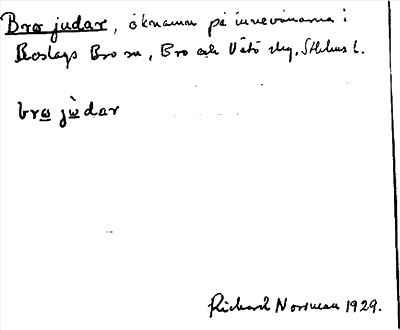 Bro judar, öknamn på innevånarna i
Roslags Bro sn, Bro och Vätö skg, Sthlms l.
bro jùdar
Richard Norrman 1929.